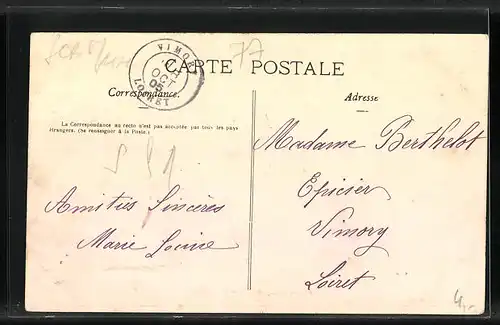 77
VIMORY
OCT
05
LOIRET
CARTE POSTALE
Correspondance.
Adresse
La Correspondance au recto n'est pas acceptée par tous les pays
étrangers. (Se renseigner à la Poste.)
Madame Berthelot
Epicier
Vimory
Loiret
Amitiés Sincères
Marie Louise